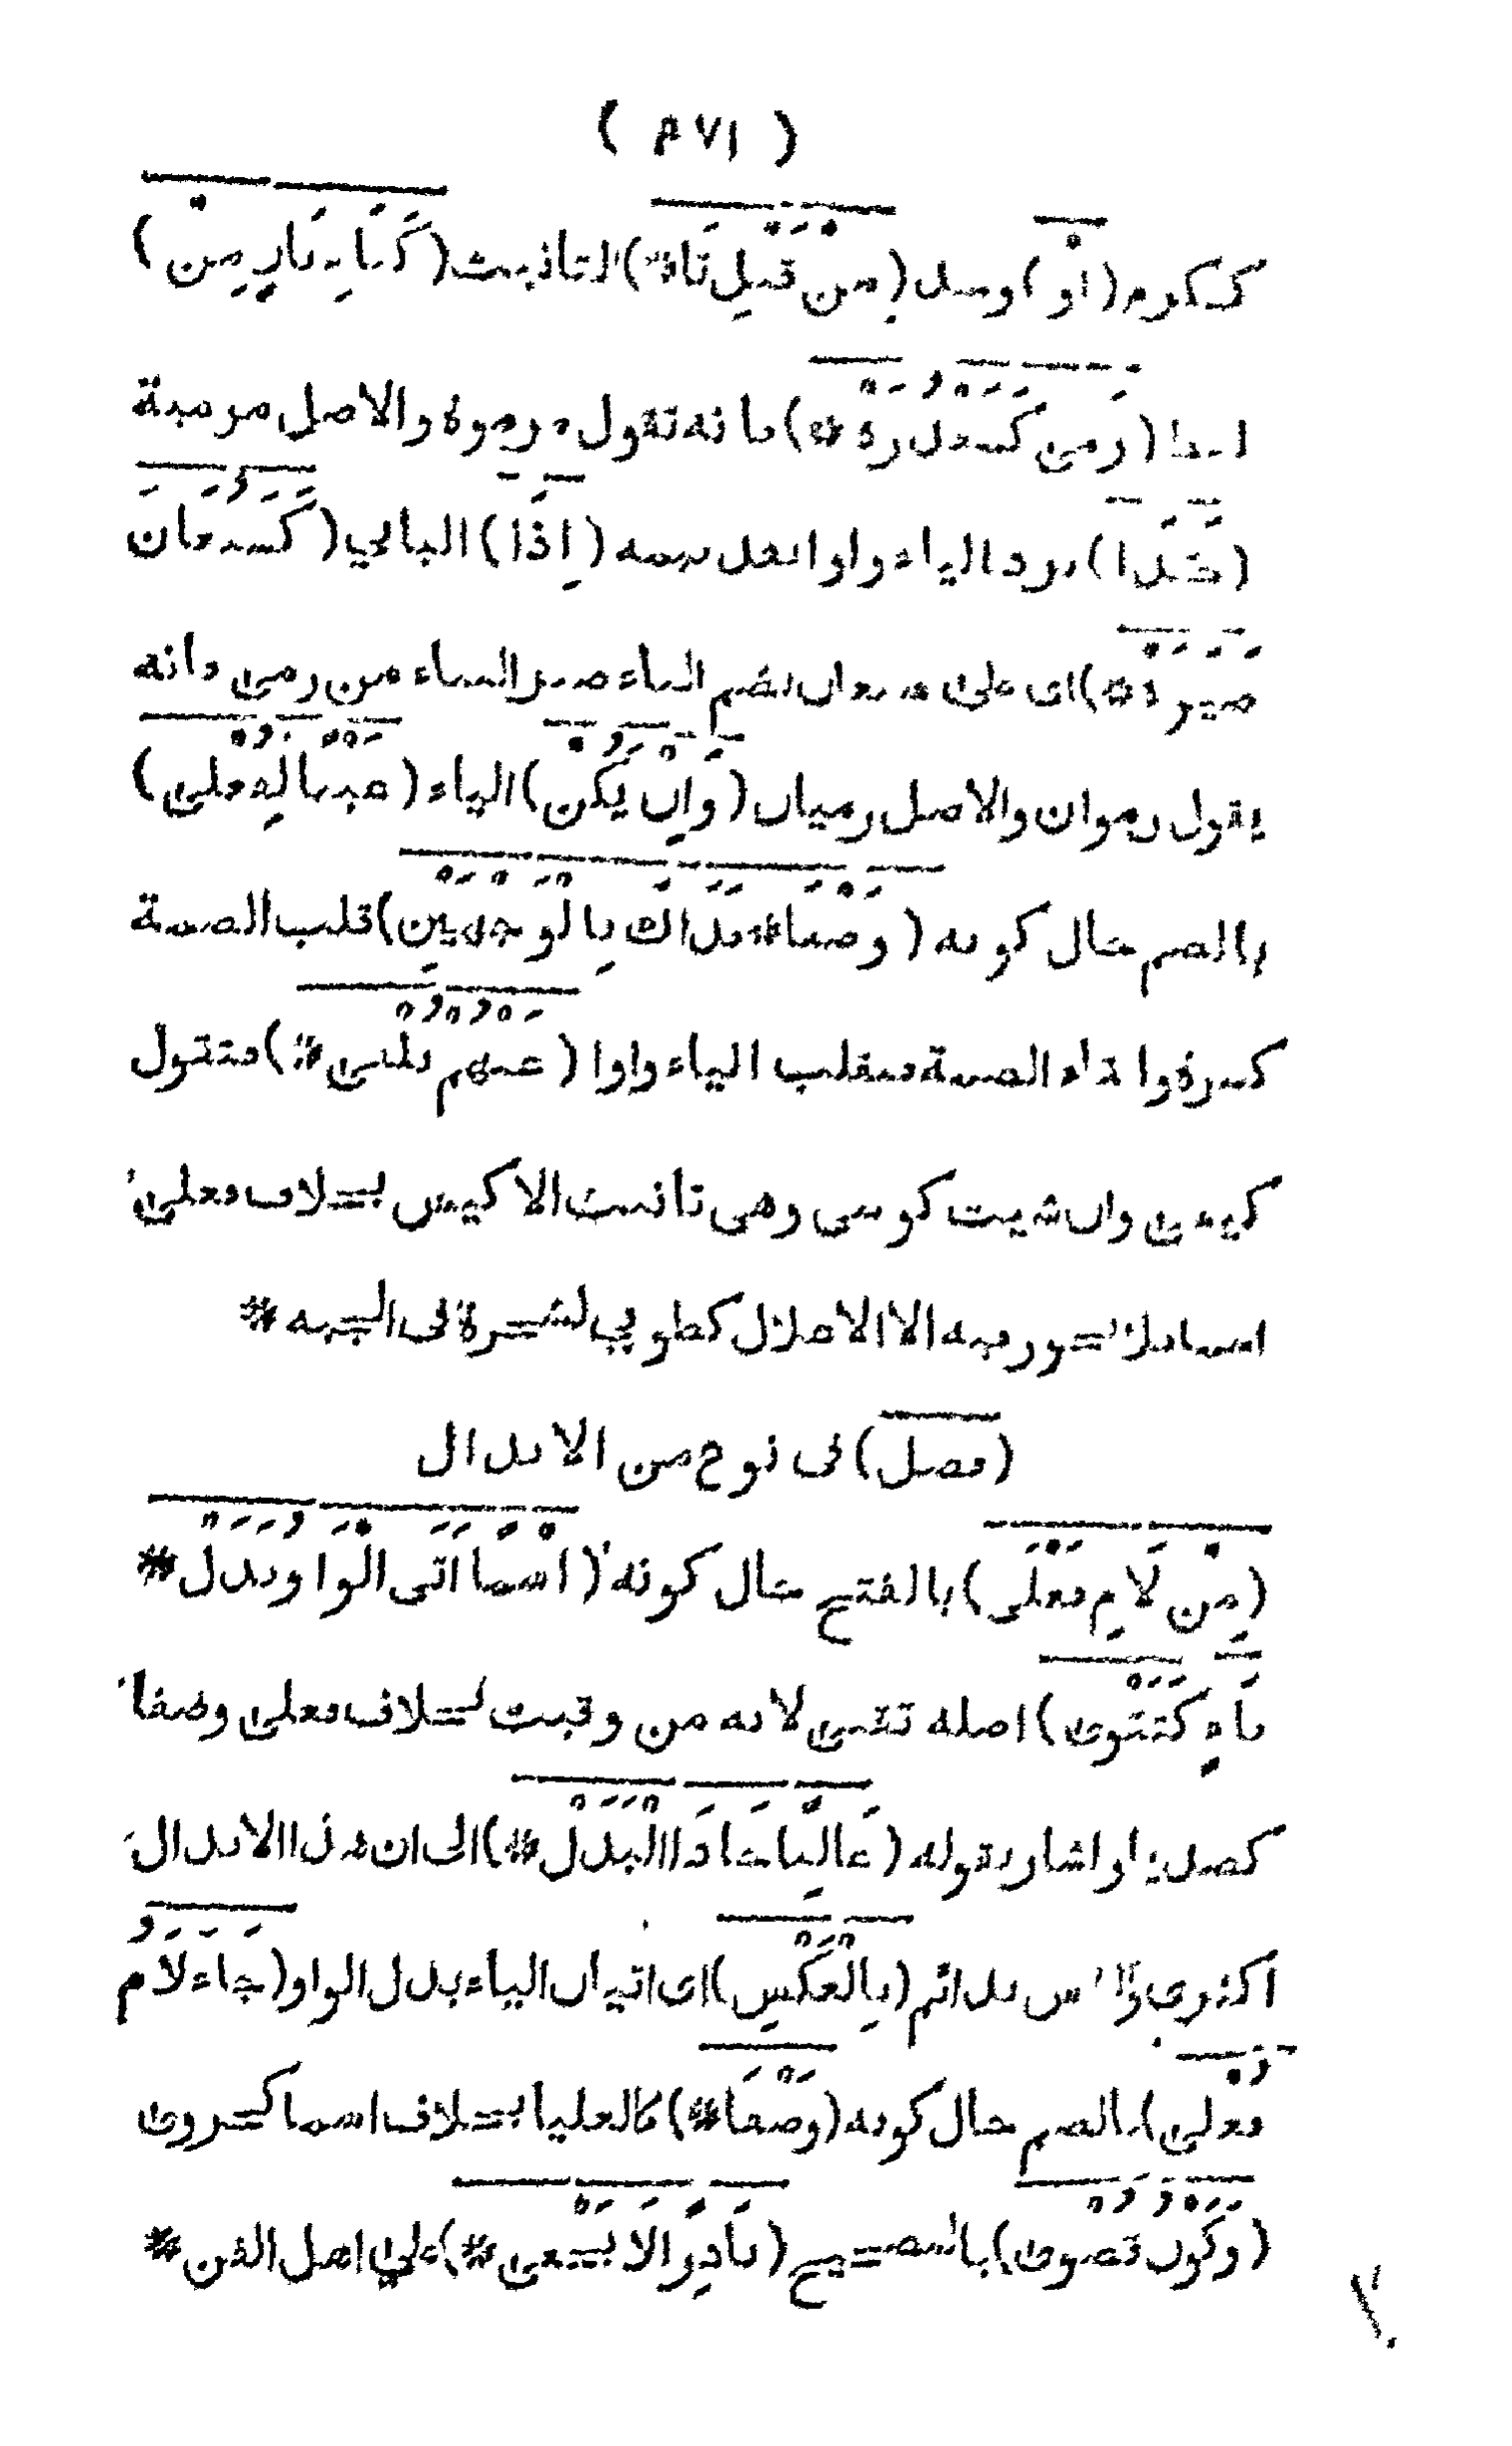 ( ٣٧١ )
كنهو (أَوْ) وصل (مِنْ قَبْلِ تَا*) التانيث (كَتَاءِ بَانٍ مِنْ)
ايضا (رَمَى كَمَقْدُرَهْ *) فانه تقول مرموة والاصل مرمية
(كَذَا) ترد الياء واوا بعد ضمه (إِذَا) الباني (كَسَبُعَانَ
صَيَّرَهُ *) اى على سبعان بضم الباء صير البناء من رمى فانه
يقول رموان والاصل رميان (وَإِنْ يَكُنْ) الياء (عَيْنًا لِفُعْلَى)
بالضم حال كونه (وَصْفًا * فَذَاكَ بِالْوَجْهَيْنِ) قلب الضمة
كسرة وابقاء الضمة فتقلب الياء واوا (عَنْهُمْ يُلْفَى *) فتقول
كيسى وان شيت كوسى وهى تانيث الاكيس بخلاف فعلى
اسما فلا يجوز فيه الا الاعلال كطوبى لشجرة فى الجنه *
(فصل) فى نوع من الابدال
(مِنْ لَامِ فَعْلَى) بالفتح حال كونه (اسْمًا أَتَى الْوَاوُ بَدَلَ *
يَاءٍ كَتَقْوَى) اصله تقيى لانه من وقيت بخلاف فعلى وصفا
كصديا واشار بقوله (غَالِبًا جَا ذَا الْبَدَلْ *) الى ان هذا الابدال
اكثرى وليس بدائم (بِالْعَكْسِ) اى اتيان الياء بدل الواو (جَاءَ لَامُ
فُعْلَى) بالضم حال كونه (وَصْفًا *) كالعليا بخلاف اسما كحزوى
(وَكَوْنُ قُصْوَى) بالتصحيح (نَادِرًا لَا يَخْفَى *) على اهل الفن *